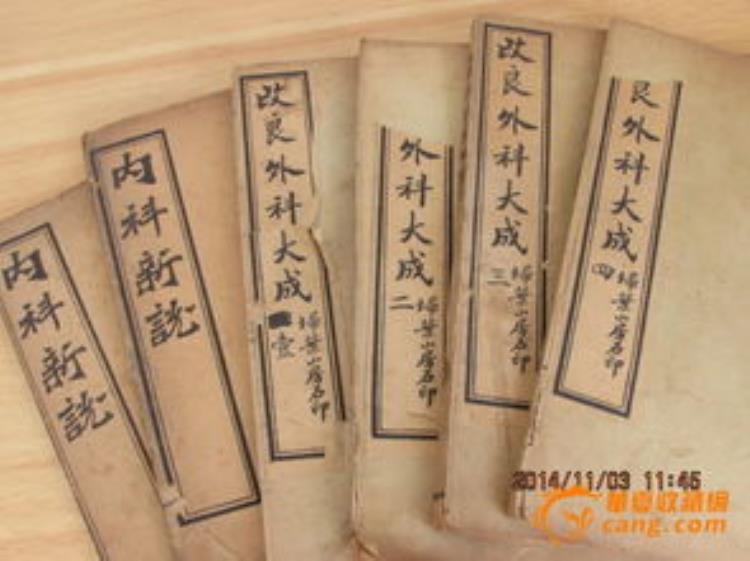 内科新説
内科新説
改良外科大成
壹
埽葉山房石印
外科大成
二
埽葉山房石印
改良外科大成
三
埽葉山房石印
良外科大成
四
埽葉山房石印
2014/11/03 11:45
華夏收藏網
cang.com